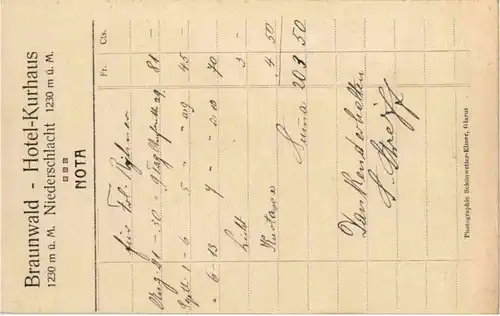 Braunwald - Hotel-Kurhaus
1230 m ü. M. Niederschlacht 1230 m ü. M.
NOTA
Fr. Cts.
für Frl.
Aug. 21 - 30 - 9 Tag à 9 81 -
Sept. 1 - 6 5 - - à 9 45 -
- 6 - 13 7 - - à 10 70 -
Licht 3 -
Kurtaxen 4 50
Summa 203 50
Dankend erhalten
S. Streiff
Photographie Schönwetter-Elmer, Glarus